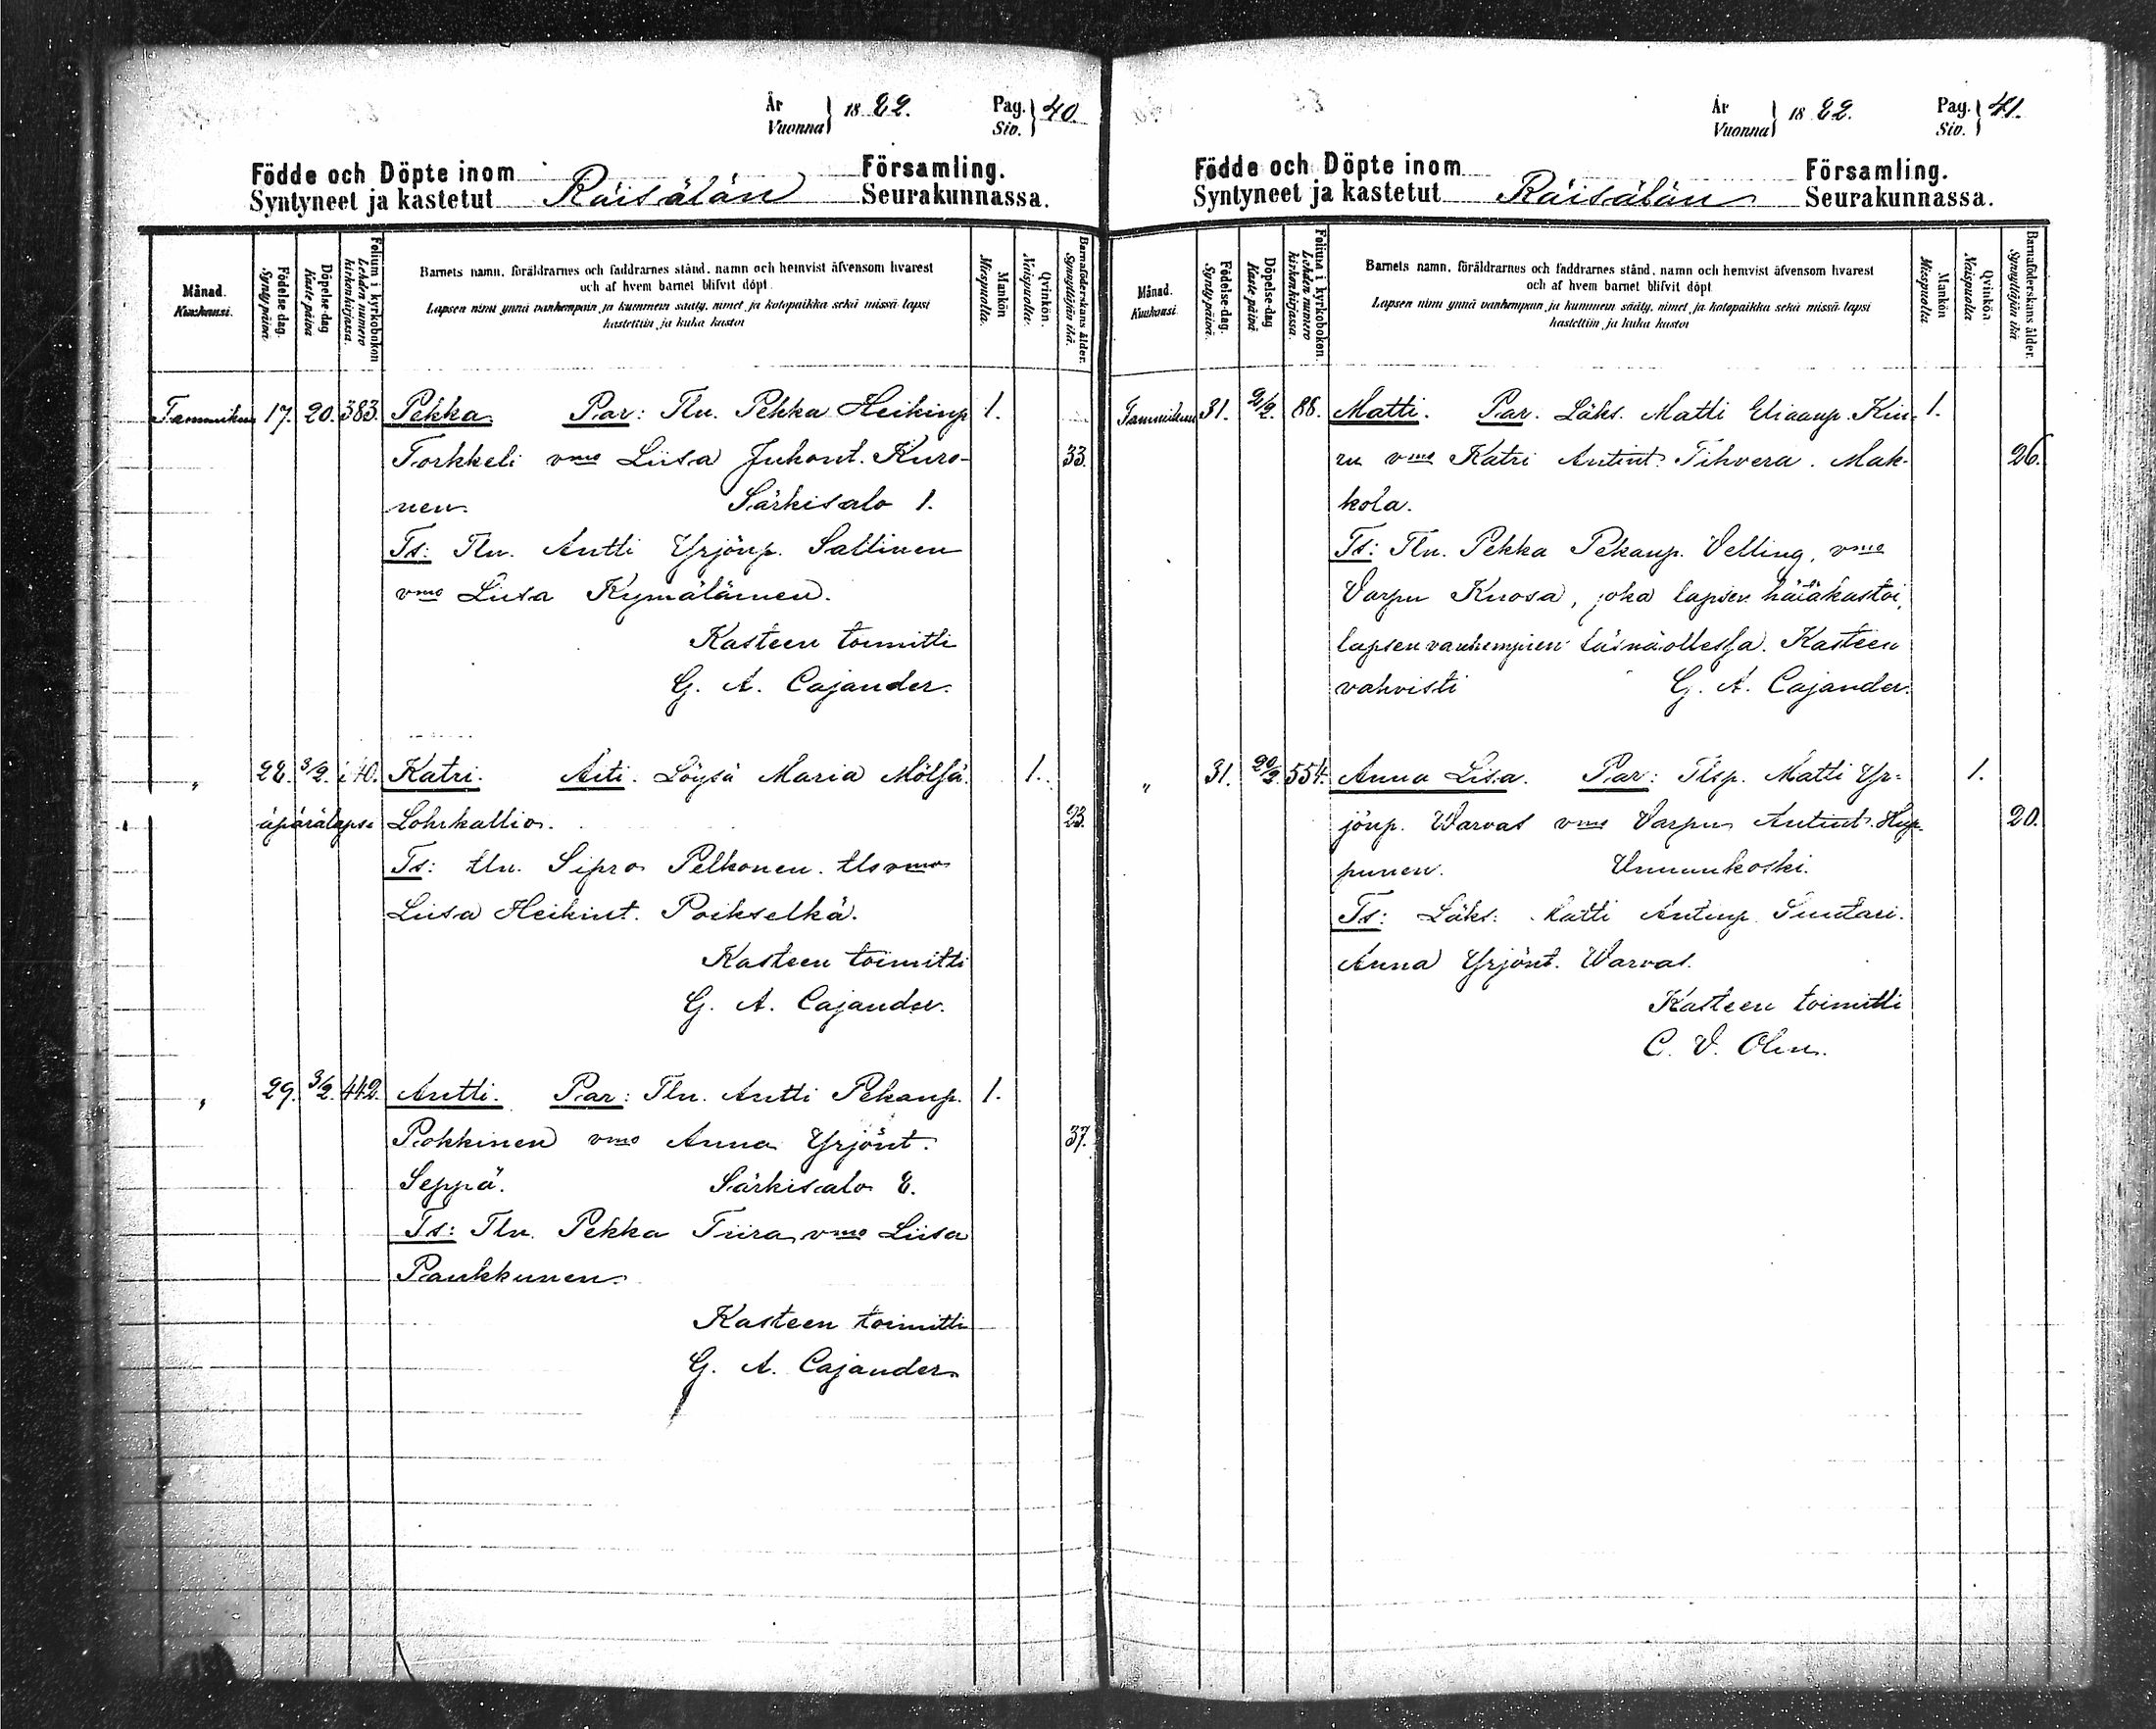 År
Vuonna
1882.
Pag.
Siv.
40.
Födde och Döpte inom Församling.
Syntyneet ja kastetut Räisälän Seurakunnassa.
Månad.
Kuukausi.
Födelse-dag.
Syntypäivä.
Döpelse-dag
Kastepäivä
Folium i kyrkoboken
Lehden numero
kirkonkirjassa.
Barnets namn, föräldrarnes och faddrarnes stånd, namn och hemvist äfvensom hvarest
och af hvem barnet blifvit döpt.
Lapsen nimi ynnä vanhempain ja kummein sääty, nimet ja kotopaikka sekä missä lapsi
kastettiin ja kuka kastoi
Mankön
Miespuolia.
Qvinkön.
Naispuolia.
Barnaföderskans ålder.
Synnyttäjän ikä.
Tammikuu 17. 20. 383. Pekka Par: Tln. Pekka Heikinp. 1.
Torkkeli vmo Liisa Juhont. Kuro- 33.
nen. Särkisalo 1.
Ts: Tln. Antti Yrjönp. Sallinen
vmo Liisa Kymäläinen.
Kasteen toimitti
G. A. Cajander.
" 22. 3/2. 40. Katri. Äiti. Löysä Maria Mölsä. 1.
äpärälapsi Lohrkallio. 23.
Ts: tln. Sipro Pelkonen. tlsvmo
Liisa Heikint. Poikselkä.
Kasteen toimitti
G. A. Cajander.
" 29. 3/2. 442. Antti. Par: Tln. Antti Pekanp. 1.
Pokkinen vmo Anna Yrjönt. 37.
Seppä. Särkisalo 2.
Ts: Tln. Pekka Tiira, vmo Liisa
Paukkunen.
Kasteen toimitti
G. A. Cajander
År
Vuonna
1882.
Pag.
Siv.
41.
Födde och Döpte inom Församling.
Syntyneet ja kastetut Räisälän Seurakunnassa.
Månad.
Kuukausi
Födelse-dag.
Syntypäivä.
Döpelse-dag
Kastepäivä
Folium i kyrkoboken.
Lehden numero
kirkonkirjassa.
Barnets namn, föräldrarnes och faddrarnes stånd, namn och hemvist äfvensom hvarest
och af hvem barnet blifvit döpt
Lapsen nimi ynnä vanhempain ja kummein sääty, nimet ja kotopaikka sekä missä lapsi
kastettiin ja kuka kastoi
Mankön
Miespuolia
Qvinkön
Naispuolia
Barnaföderskans ålder.
Synnyttäjän ikä
Tammikuu 31. 2/2. 88. Matti. Par. Läks. Matti Eliaanp. Kiu- 1.
ru vmo Katri Antint. Tihvera. Mak- 26.
kola.
Ts: Tln. Pekka Pekanp. Velling, vmo
Varpu Kuosa, joka lapsen hätäkastoi,
lapsen vanhempien läsnäollessa. Kasteen
vahvisti G. A. Cajander.
" 31. 20/2. 554. Anna Lisa. Par: Tlsp. Matti Yr- 1.
jönp. Warvas vmo Varpu Antint. Hyp- 20.
punen. Unnunkoski.
Ts: Läks: Matti Antinp. Suutari.
Anna Yrjönt. Warvas.
Kasteen toimitti
C. V. Olen.